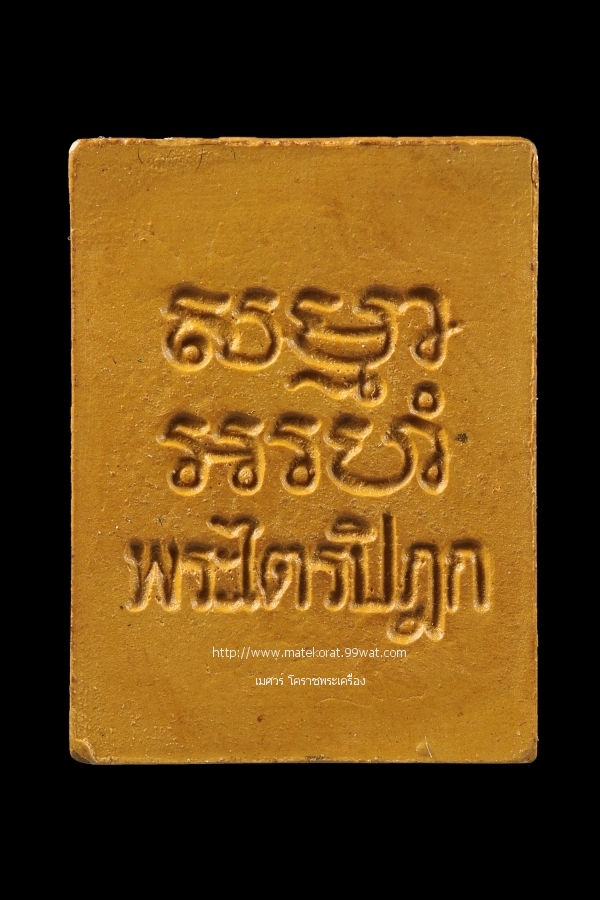 សម្មា
អរហំ
พระไตรปิฎก
http://www.matekorat.99wat.com
เมศวร์ โคราชพระเครื่อง